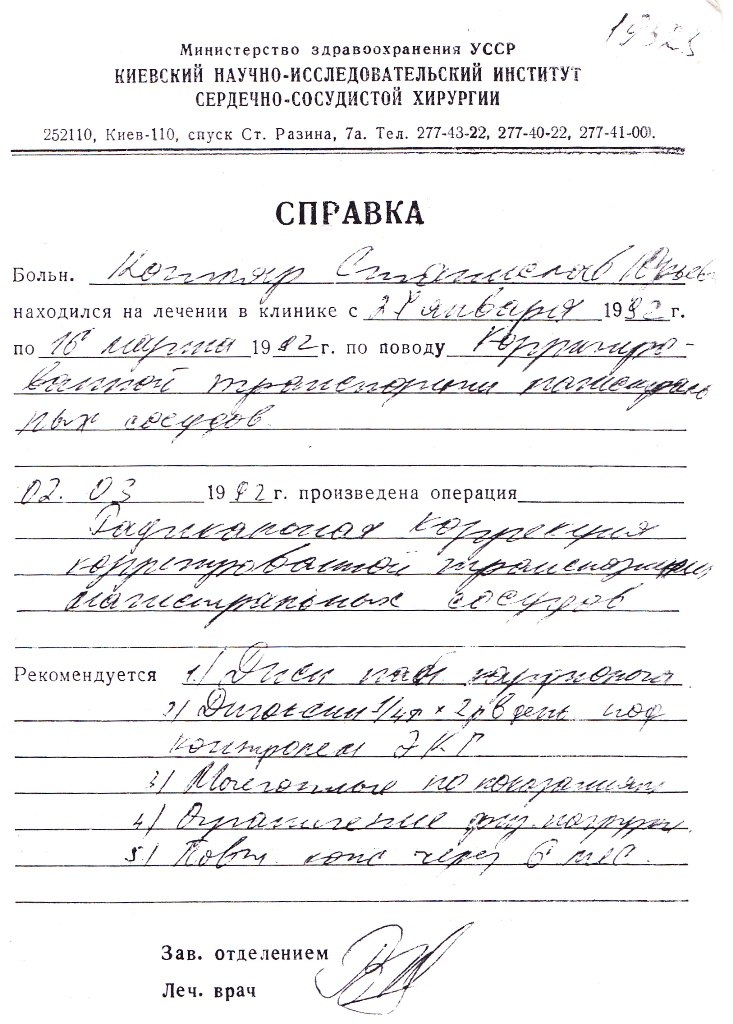 Министерство здравоохранения УССР
КИЕВСКИЙ НАУЧНО-ИССЛЕДОВАТЕЛЬСКИЙ ИНСТИТУТ
СЕРДЕЧНО-СОСУДИСТОЙ ХИРУРГИИ
252110, Киев-110, спуск Ст. Разина, 7а. Тел. 277-43-22, 277-40-22, 277-41-00).
СПРАВКА
Больн. Котляр Станислав Юрьев
находился на лечении в клинике с января 19 г.
по 16 марта 19 г. по поводу Корригиро-
ванной транспозиции магистраль
ных сосудов
02. 03 19 г. произведена операция
Радикальная коррекция
корригированной транспозиции
магистральных сосудов
Рекомендуется 1/ Дисп набл кардиолога
2/ Дигоксин 1/4т × 2р в день под
контролем ЭКГ
3/ Мочегонные по показаниям
4/ Ограничение физ. нагрузки
5/ Повт. конс через 6 мес.
Зав. отделением
Леч. врач